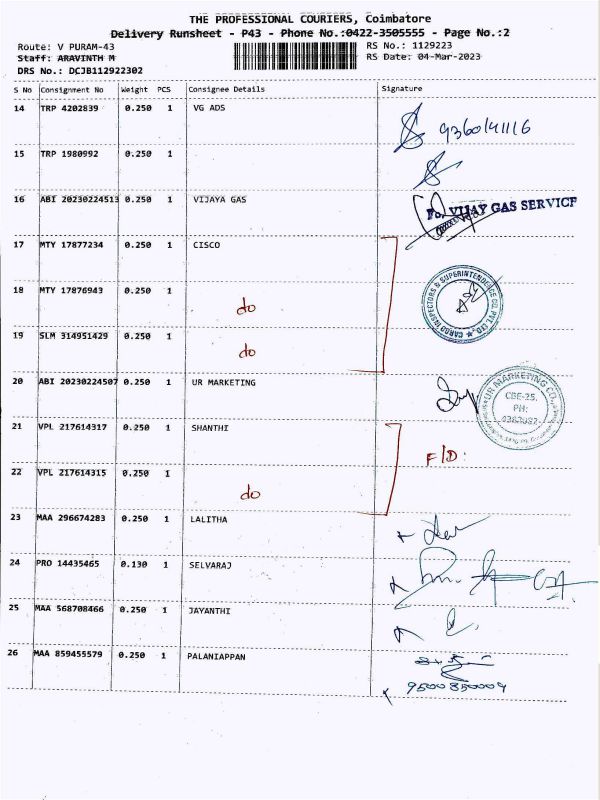 THE PROFESSIONAL COURIERS, Coimbatore
Delivery Runsheet - P43 - Phone No.:0422-3505555 - Page No.:2
Route: V PURAM-43 RS No.: 1129223
Staff: ARAVINTH M RS Date: 04-Mar-2023
DRS No.: DCJB112922302
S No Consignment No Weight PCS Consignee Details Signature
14 TRP 4202839 0.250 1 VG ADS 9360141116
15 TRP 1980992 0.250 1
16 ABI 20230224513 0.250 1 VIJAYA GAS For VIJAY GAS SERVICE
17 MTY 17877234 0.250 1 CISCO
18 MTY 17876943 0.250 1 do CARGO INSPECTORS & SUPERINTENDENCE CO. PVT. LTD.
19 SLM 314951429 0.250 1 do
20 ABI 20230224507 0.250 1 UR MARKETING UR MARKETING CO. CBE-25. PH:
21 VPL 217614317 0.250 1 SHANTHI F/D:
22 VPL 217614315 0.250 1 do
23 MAA 296674283 0.250 1 LALITHA
24 PRO 14435465 0.130 1 SELVARAJ
25 MAA 568708466 0.250 1 JAYANTHI
26 MAA 859455579 0.250 1 PALANIAPPAN
9500850009